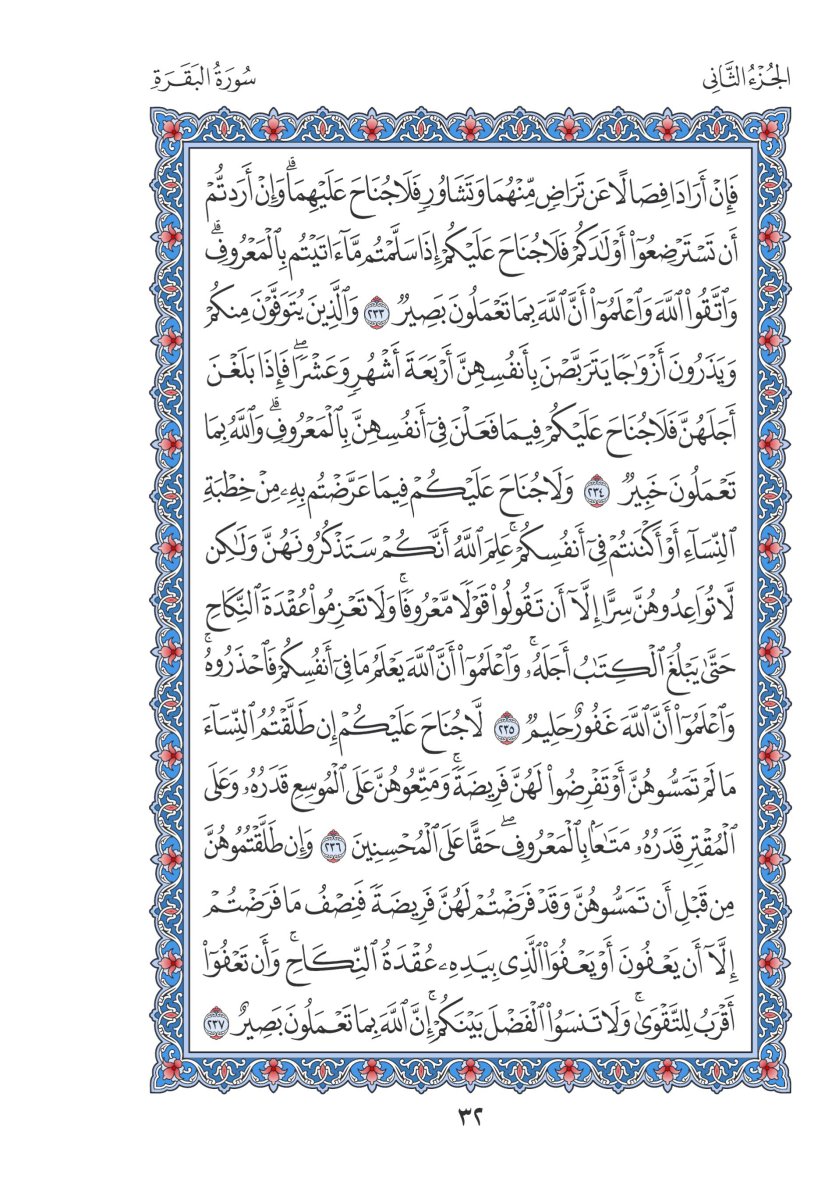 الجُزْءُ الثَّانِي
سُورَةُ البَقَرَةِ
فَإِنْ أَرَادَا فِصَالًا عَن تَرَاضٍ مِّنْهُمَا وَتَشَاوُرٍ فَلَا جُنَاحَ عَلَيْهِمَاۗ وَإِنْ أَرَدتُّمْ
أَن تَسْتَرْضِعُوٓا۟ أَوْلَٰدَكُمْ فَلَا جُنَاحَ عَلَيْكُمْ إِذَا سَلَّمْتُم مَّآ ءَاتَيْتُم بِٱلْمَعْرُوفِۗ
وَٱتَّقُوا۟ ٱللَّهَ وَٱعْلَمُوٓا۟ أَنَّ ٱللَّهَ بِمَا تَعْمَلُونَ بَصِيرٌ ٢٣٣ وَٱلَّذِينَ يُتَوَفَّوْنَ مِنكُمْ
وَيَذَرُونَ أَزْوَٰجًا يَتَرَبَّصْنَ بِأَنفُسِهِنَّ أَرْبَعَةَ أَشْهُرٍ وَعَشْرًاۖ فَإِذَا بَلَغْنَ
أَجَلَهُنَّ فَلَا جُنَاحَ عَلَيْكُمْ فِيمَا فَعَلْنَ فِىٓ أَنفُسِهِنَّ بِٱلْمَعْرُوفِۗ وَٱللَّهُ بِمَا
تَعْمَلُونَ خَبِيرٌ ٢٣٤ وَلَا جُنَاحَ عَلَيْكُمْ فِيمَا عَرَّضْتُم بِهِۦ مِنْ خِطْبَةِ
ٱلنِّسَآءِ أَوْ أَكْنَنتُمْ فِىٓ أَنفُسِكُمْۚ عَلِمَ ٱللَّهُ أَنَّكُمْ سَتَذْكُرُونَهُنَّ وَلَٰكِن
لَّا تُوَاعِدُوهُنَّ سِرًّا إِلَّآ أَن تَقُولُوا۟ قَوْلًا مَّعْرُوفًاۚ وَلَا تَعْزِمُوا۟ عُقْدَةَ ٱلنِّكَاحِ
حَتَّىٰ يَبْلُغَ ٱلْكِتَٰبُ أَجَلَهُۥۚ وَٱعْلَمُوٓا۟ أَنَّ ٱللَّهَ يَعْلَمُ مَا فِىٓ أَنفُسِكُمْ فَٱحْذَرُوهُۚ
وَٱعْلَمُوٓا۟ أَنَّ ٱللَّهَ غَفُورٌ حَلِيمٌ ٢٣٥ لَّا جُنَاحَ عَلَيْكُمْ إِن طَلَّقْتُمُ ٱلنِّسَآءَ
مَا لَمْ تَمَسُّوهُنَّ أَوْ تَفْرِضُوا۟ لَهُنَّ فَرِيضَةًۚ وَمَتِّعُوهُنَّ عَلَى ٱلْمُوسِعِ قَدَرُهُۥ وَعَلَى
ٱلْمُقْتِرِ قَدَرُهُۥ مَتَٰعًۢا بِٱلْمَعْرُوفِۖ حَقًّا عَلَى ٱلْمُحْسِنِينَ ٢٣٦ وَإِن طَلَّقْتُمُوهُنَّ
مِن قَبْلِ أَن تَمَسُّوهُنَّ وَقَدْ فَرَضْتُمْ لَهُنَّ فَرِيضَةً فَنِصْفُ مَا فَرَضْتُمْ
إِلَّآ أَن يَعْفُونَ أَوْ يَعْفُوَا۟ ٱلَّذِى بِيَدِهِۦ عُقْدَةُ ٱلنِّكَاحِۚ وَأَن تَعْفُوٓا۟
أَقْرَبُ لِلتَّقْوَىٰۚ وَلَا تَنسَوُا۟ ٱلْفَضْلَ بَيْنَكُمْۚ إِنَّ ٱللَّهَ بِمَا تَعْمَلُونَ بَصِيرٌ ٢٣٧
٣٢